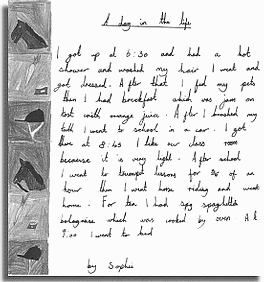 A day in the life
I got up at 6:30 and had a hot
shower and washed my hair I went and
got dressed. After that I fed my pets
then I had breakfast which was jam on
tost with orange juice. After I brushed my
teeth I went to school in a car. I got
there at 8:45 I like our class room
because it is very light. After school
I went to trumpet lessons for 3/4 of an
hour then I went horse riding and went
home. For tea I had spag spaghetti
bolognaise which was cooked by oven At
9:00 I went to bed
by Sophie